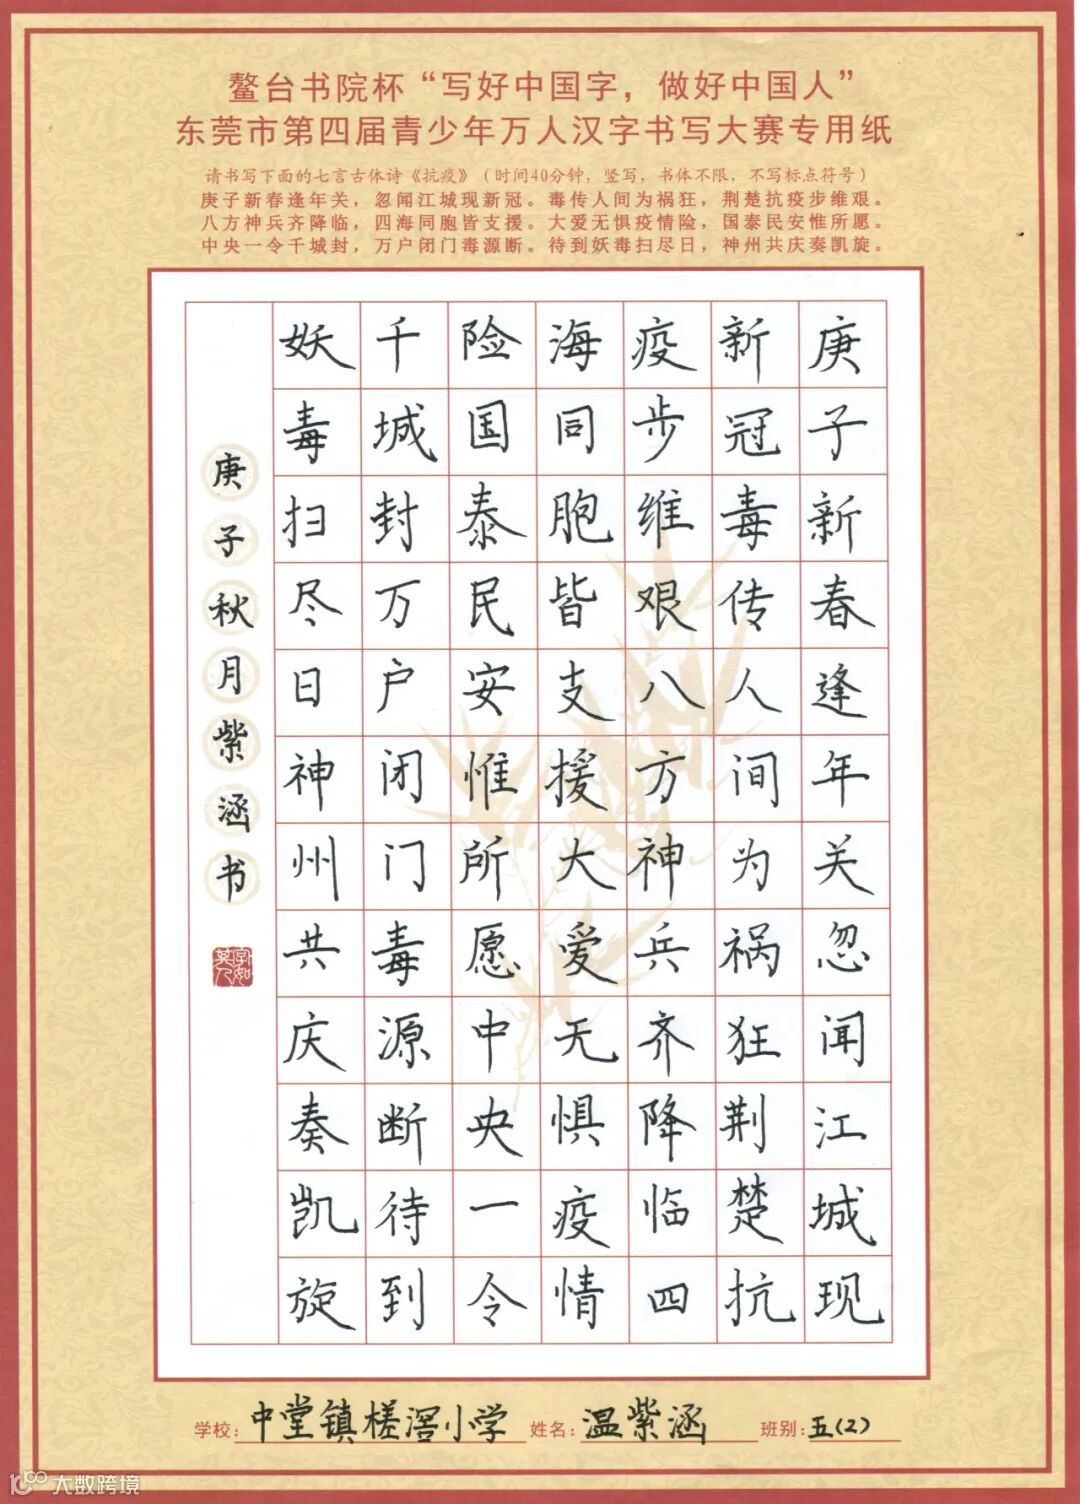 鳌台书院杯“写好中国字，做好中国人”
东莞市第四届青少年万人汉字书写大赛专用纸
请书写下面的七言古体诗《抗疫》（时间40分钟，竖写，书体不限，不写标点符号）
庚子新春逢年关，忽闻江城现新冠。毒传人间为祸狂，荆楚抗疫步维艰。
八方神兵齐降临，四海同胞皆支援。大爱无惧疫情险，国泰民安惟所愿。
中央一令千城封，万户闭门毒源断。待到妖毒扫尽日，神州共庆奏凯旋。
庚子新春逢年关忽闻江城现
新冠毒传人间为祸狂荆楚抗
疫步维艰八方神兵齐降临四
海同胞皆支援大爱无惧疫情
险国泰民安惟所愿中央一令
千城封万户闭门毒源断待到
妖毒扫尽日神州共庆奏凯旋
庚子秋月紫涵书
字如其人
学校：中堂镇槎滘小学 姓名：温紫涵 班别：五（2）
大数跨境